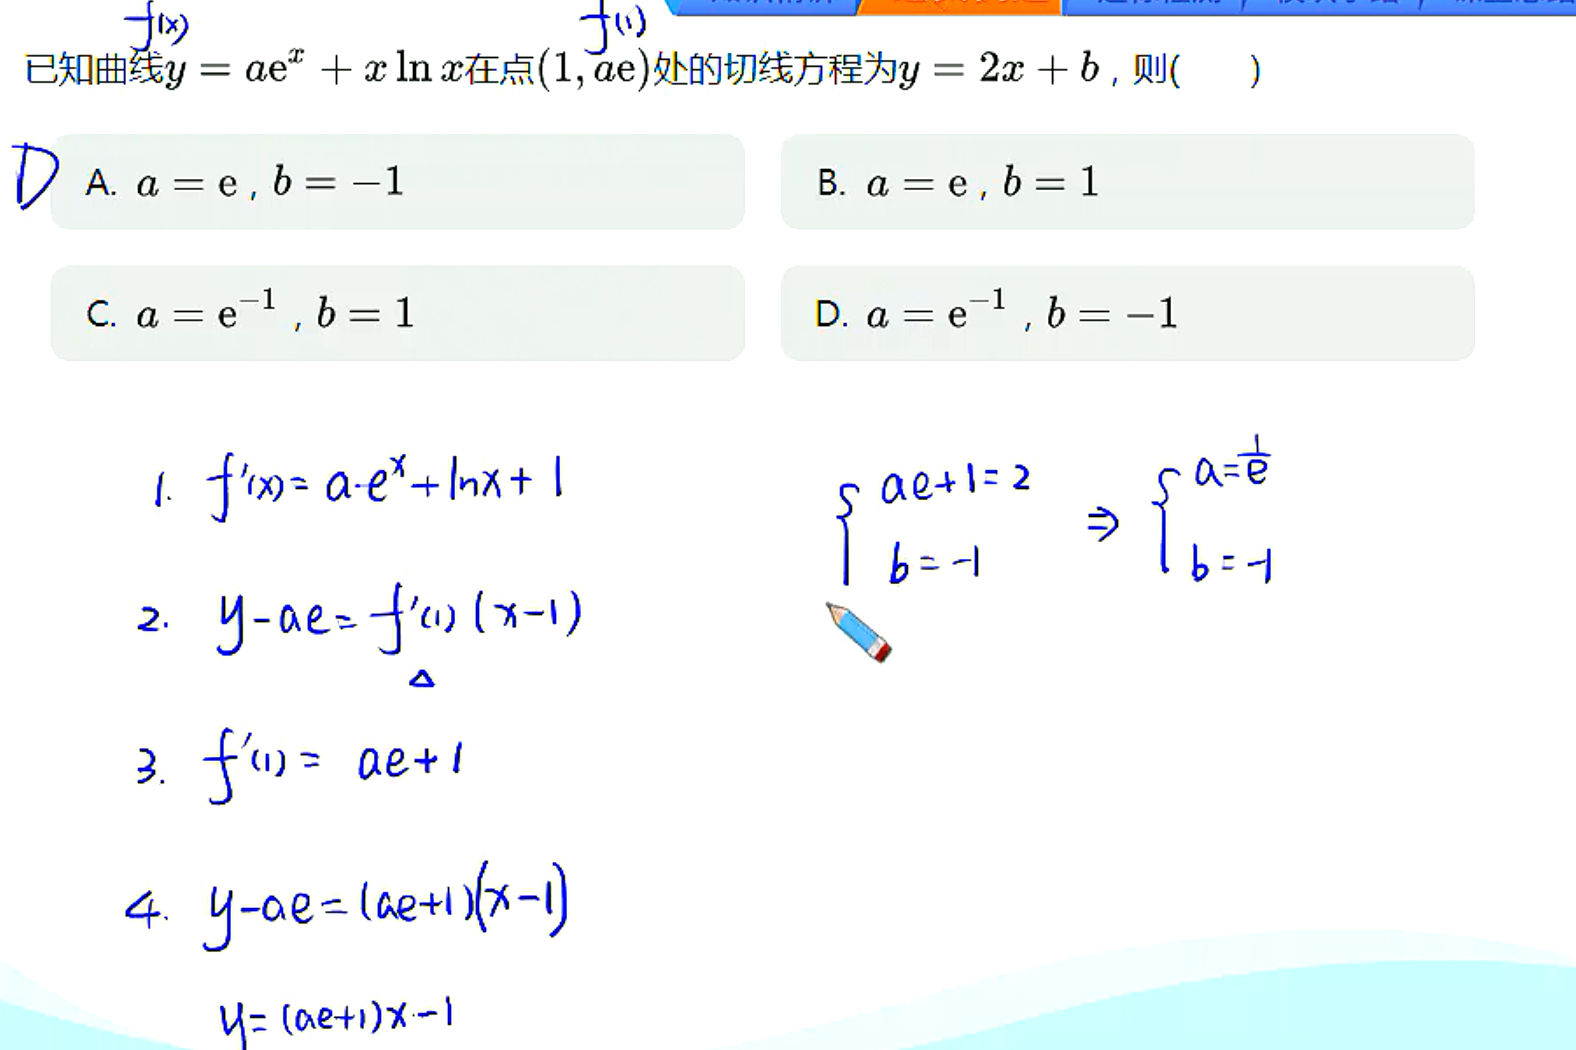 f(x) f(1)
已知曲线y = ae^x + x ln x在点(1, ae)处的切线方程为y = 2x + b，则(  )
D
A. a = e，b = −1
B. a = e，b = 1
C. a = e^{−1}，b = 1
D. a = e^{−1}，b = −1
1. f'(x) = a·e^x + lnx + 1
2. y-ae = f'(1)(x-1)
3. f'(1) = ae+1
4. y-ae = (ae+1)(x-1)
y = (ae+1)x-1
{ ae+1=2
b = -1
⇒ { a = 1/e
b = -1